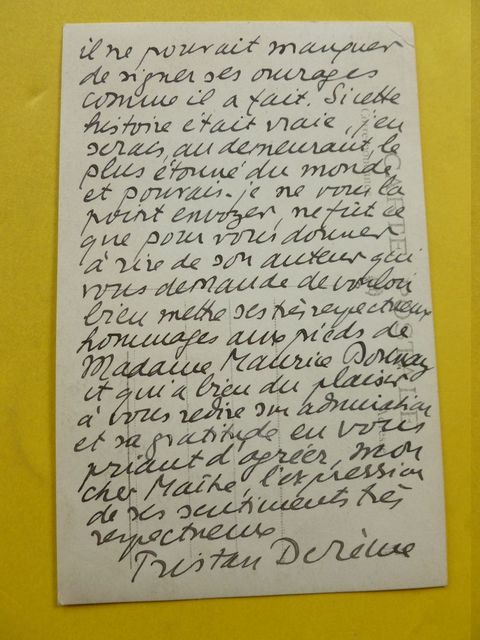 il ne pouvait manquer
de signer ses ouvrages
comme il a fait. Si cette
histoire était vraie, j'en
serais, au demeurant le
plus étonné du monde
et pouvais-je ne vous la
point envoyer, ne fût ce
que pour vous donner
à rire de son auteur qui
vous demande de vouloir
bien mettre ses très respectueux
hommages aux pieds de
Madame Maurice Donnay
et qui a bien du plaisir
à vous redire son admiration
et sa gratitude en vous
priant d'agréer, mon
cher Maître, l'expression
de ses sentiments très
respectueux
Tristan Derème
CARTE POSTALE